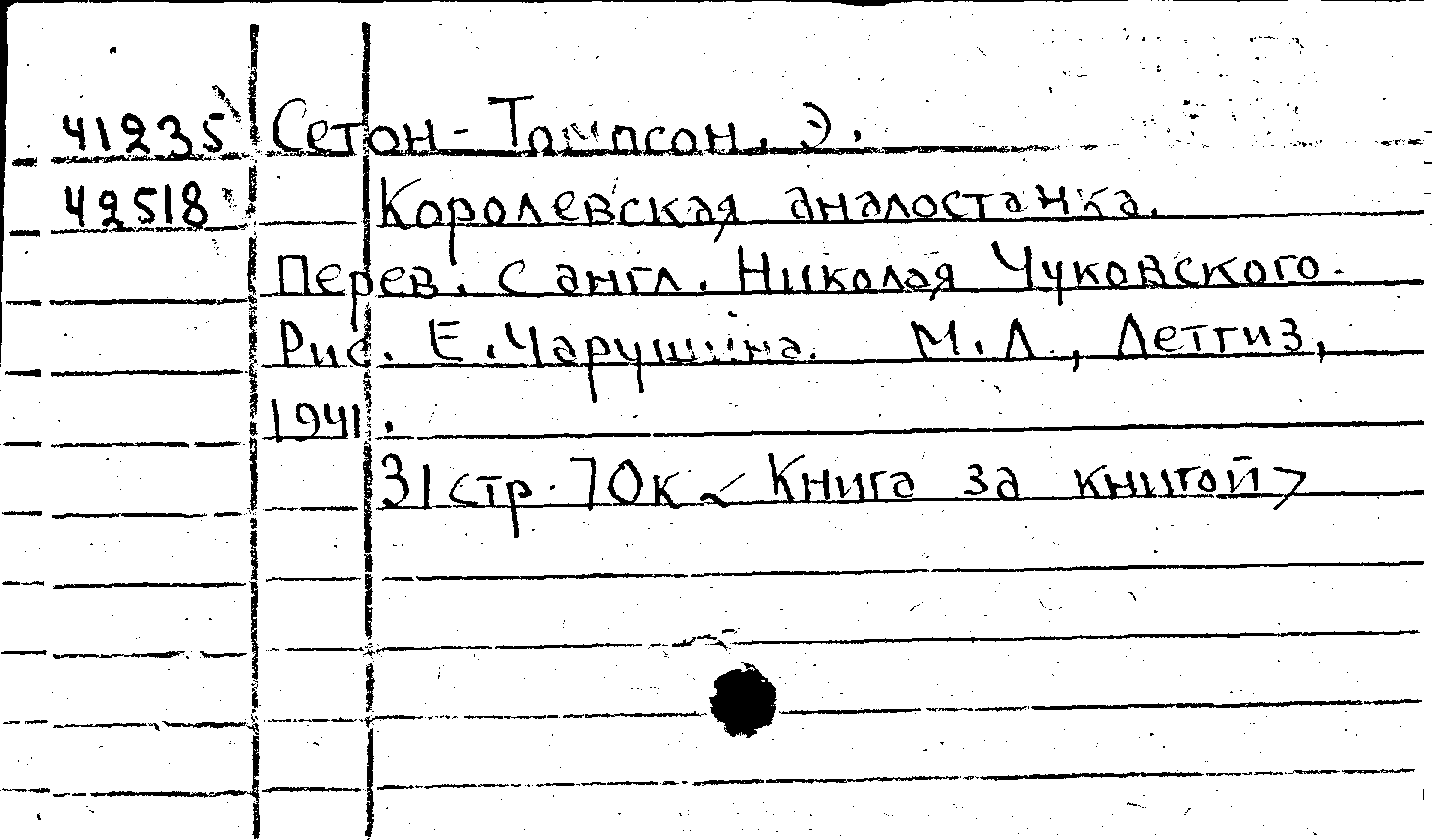 41235 Сетон-Томпсон, Э.
42518 Королевская аналостанка.
Перев. с англ. Николая Чуковского.
Рис. Е. Чарушина. М.Л., Детгиз,
1941.
31 стр. 70к < Книга за книгой >